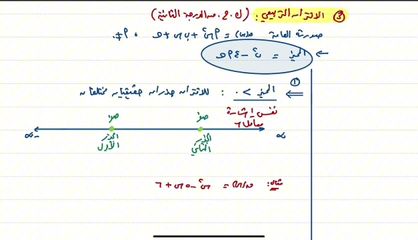 ③ الاقتران التربيعي : (ك.ح. من الدرجة الثانية)
صورته العامة ق(س) = أس² + ب س + جـ ،
← المميز = ب² - ٤أجـ
① المميز > ٠ : للاقتران جذران حقيقيان مختلفان
نفس إشارة
معامل س²
صفر صفر
-∞ ∞
الجذر الأول الجذر الثاني
مثال: ق(س) = س² - ٥س + ٦